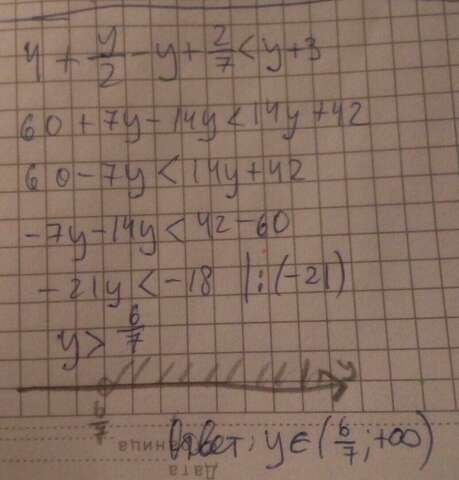 4 + y/2 - y + 2/7 < y + 3
60 + 7y - 14y < 14y + 42
60 - 7y < 14y + 42
-7y - 14y < 42 - 60
-21y < -18 |:(-21)
y > 6/7
6/7
Ответ: y ∈ (6/7; +∞)
Дата
ница